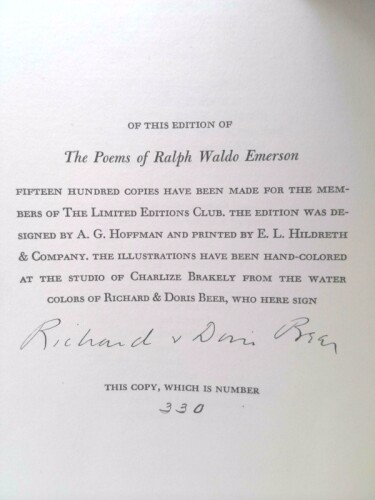 OF THIS EDITION OF
The Poems of Ralph Waldo Emerson
FIFTEEN HUNDRED COPIES HAVE BEEN MADE FOR THE MEM-
BERS OF THE LIMITED EDITIONS CLUB. THE EDITION WAS DE-
SIGNED BY A. G. HOFFMAN AND PRINTED BY E. L. HILDRETH
& COMPANY. THE ILLUSTRATIONS HAVE BEEN HAND-COLORED
AT THE STUDIO OF CHARLIZE BRAKELY FROM THE WATER
COLORS OF RICHARD & DORIS BEER, WHO HERE SIGN
Richard & Doris Beer
THIS COPY, WHICH IS NUMBER
330